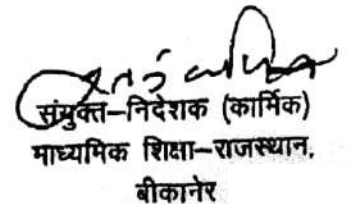 संयुक्त–निदेशक (कार्मिक)
माध्यमिक शिक्षा–राजस्थान.
बीकानेर